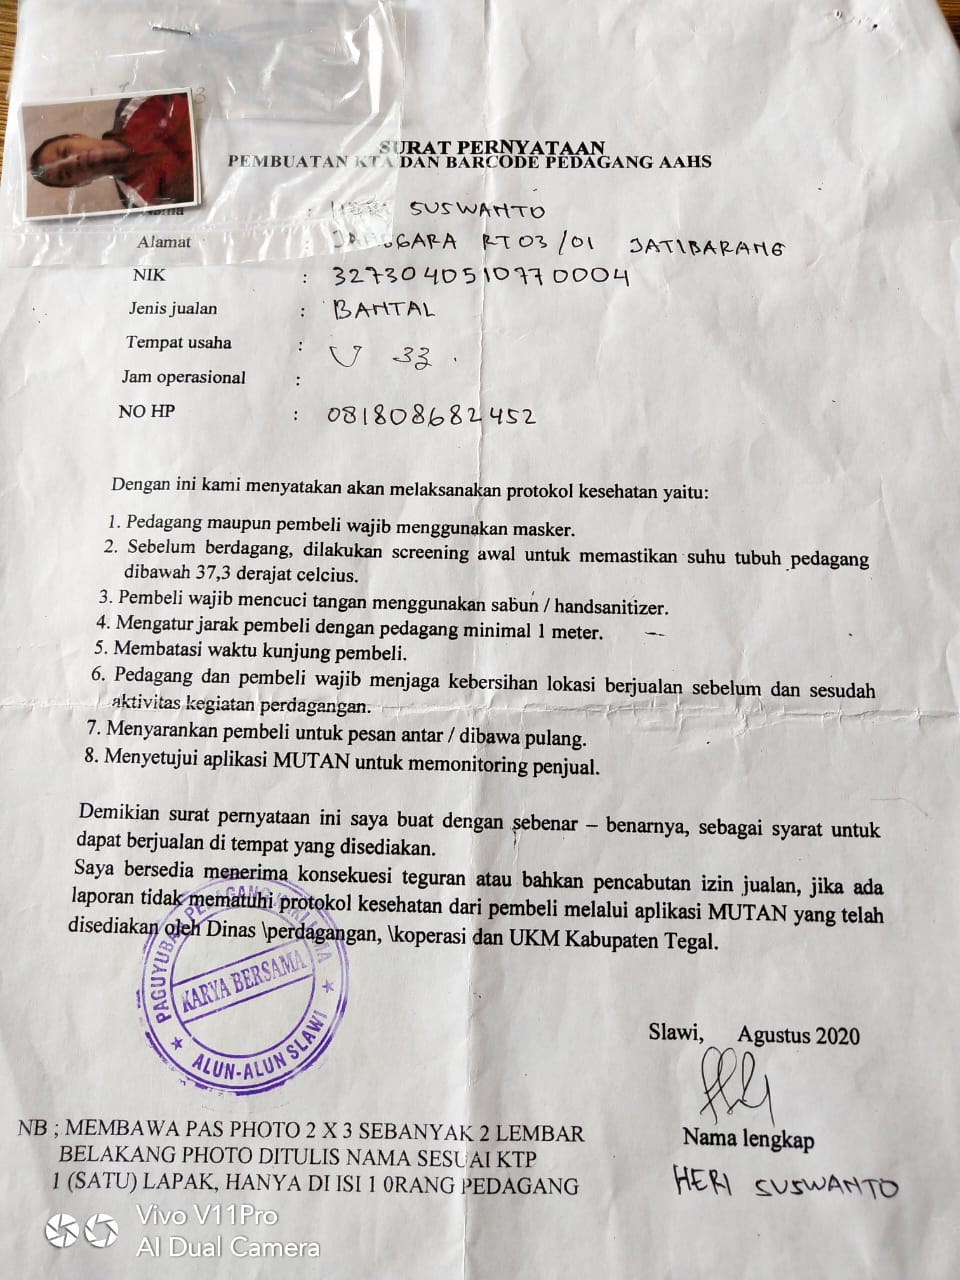 SURAT PERNYATAAN
PEMBUATAN KTA DAN BARCODE PEDAGANG AAHS
Nama : HERI SUSWANTO
Alamat : JATIBARANG RT 03 /01
NIK : 3273040510770004
Jenis jualan : BANTAL
Tempat usaha : V 33 .
Jam operasional :
NO HP : 081808682452
Dengan ini kami menyatakan akan melaksanakan protokol kesehatan yaitu:
1. Pedagang maupun pembeli wajib menggunakan masker.
2. Sebelum berdagang, dilakukan screening awal untuk memastikan suhu tubuh pedagang
dibawah 37,3 derajat celcius.
3. Pembeli wajib mencuci tangan menggunakan sabun / handsanitizer.
4. Mengatur jarak pembeli dengan pedagang minimal 1 meter.
5. Membatasi waktu kunjung pembeli.
6. Pedagang dan pembeli wajib menjaga kebersihan lokasi berjualan sebelum dan sesudah
aktivitas kegiatan perdagangan.
7. Menyarankan pembeli untuk pesan antar / dibawa pulang.
8. Menyetujui aplikasi MUTAN untuk memonitoring penjual.
Demikian surat pernyataan ini saya buat dengan sebenar – benarnya, sebagai syarat untuk
dapat berjualan di tempat yang disediakan.
Saya bersedia menerima konsekuesi teguran atau bahkan pencabutan izin jualan, jika ada
laporan tidak mematuhi protokol kesehatan dari pembeli melalui aplikasi MUTAN yang telah
disediakan oleh Dinas \perdagangan, \koperasi dan UKM Kabupaten Tegal.
PAGUYUBAN PEDAGANG KAKI LIMA
KARYA BERSAMA
ALUN-ALUN SLAWI
Slawi, Agustus 2020
Nama lengkap
HERI SUSWANTO
NB ; MEMBAWA PAS PHOTO 2 X 3 SEBANYAK 2 LEMBAR
BELAKANG PHOTO DITULIS NAMA SESUAI KTP
1 (SATU) LAPAK, HANYA DI ISI 1 0RANG PEDAGANG
Vivo V11Pro
AI Dual Camera